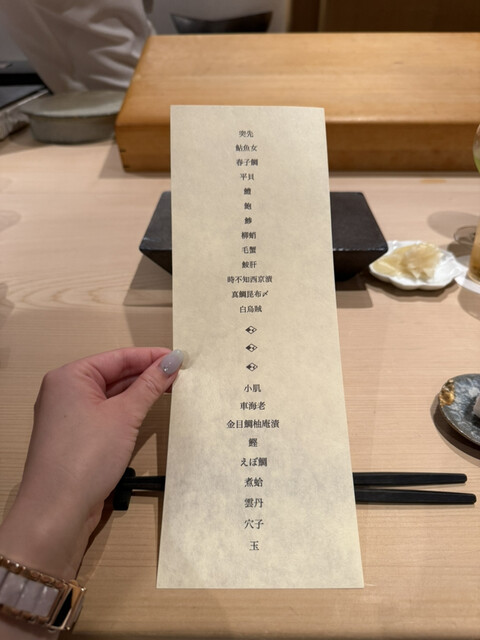 突先
鮎魚女
春子鯛
平貝
鱧
鮑
鯵
柳蛸
毛蟹
鮟肝
時不知西京漬
真鯛昆布〆
白烏賊
小肌
車海老
金目鯛柚庵漬
鰹
えぼ鯛
煮蛤
雲丹
穴子
玉